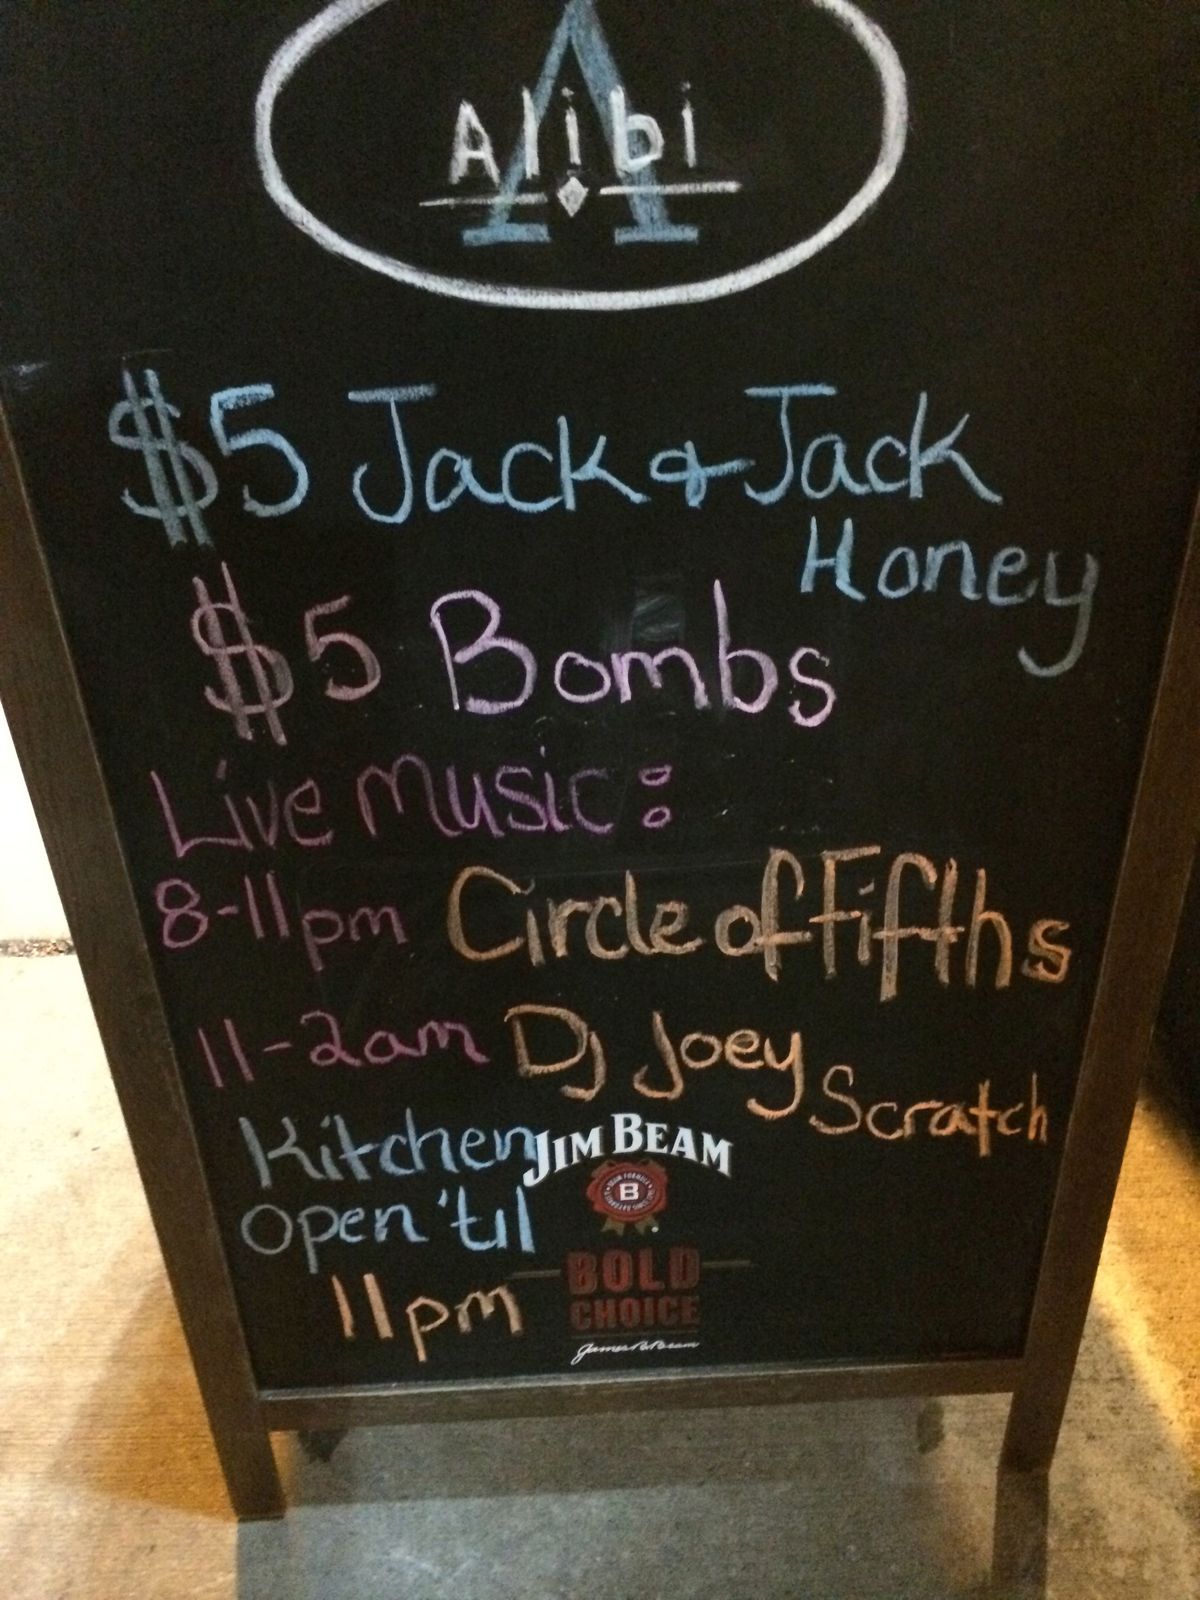 A
Alibi
$5 Jack & Jack
Honey
$5 Bombs
Live Music:
8-11pm Circle of Fifths
11-2am DJ Joey
Scratch
Kitchen
open 'til
11pm
JIM BEAM
B
BOLD
CHOICE
James B. Beam